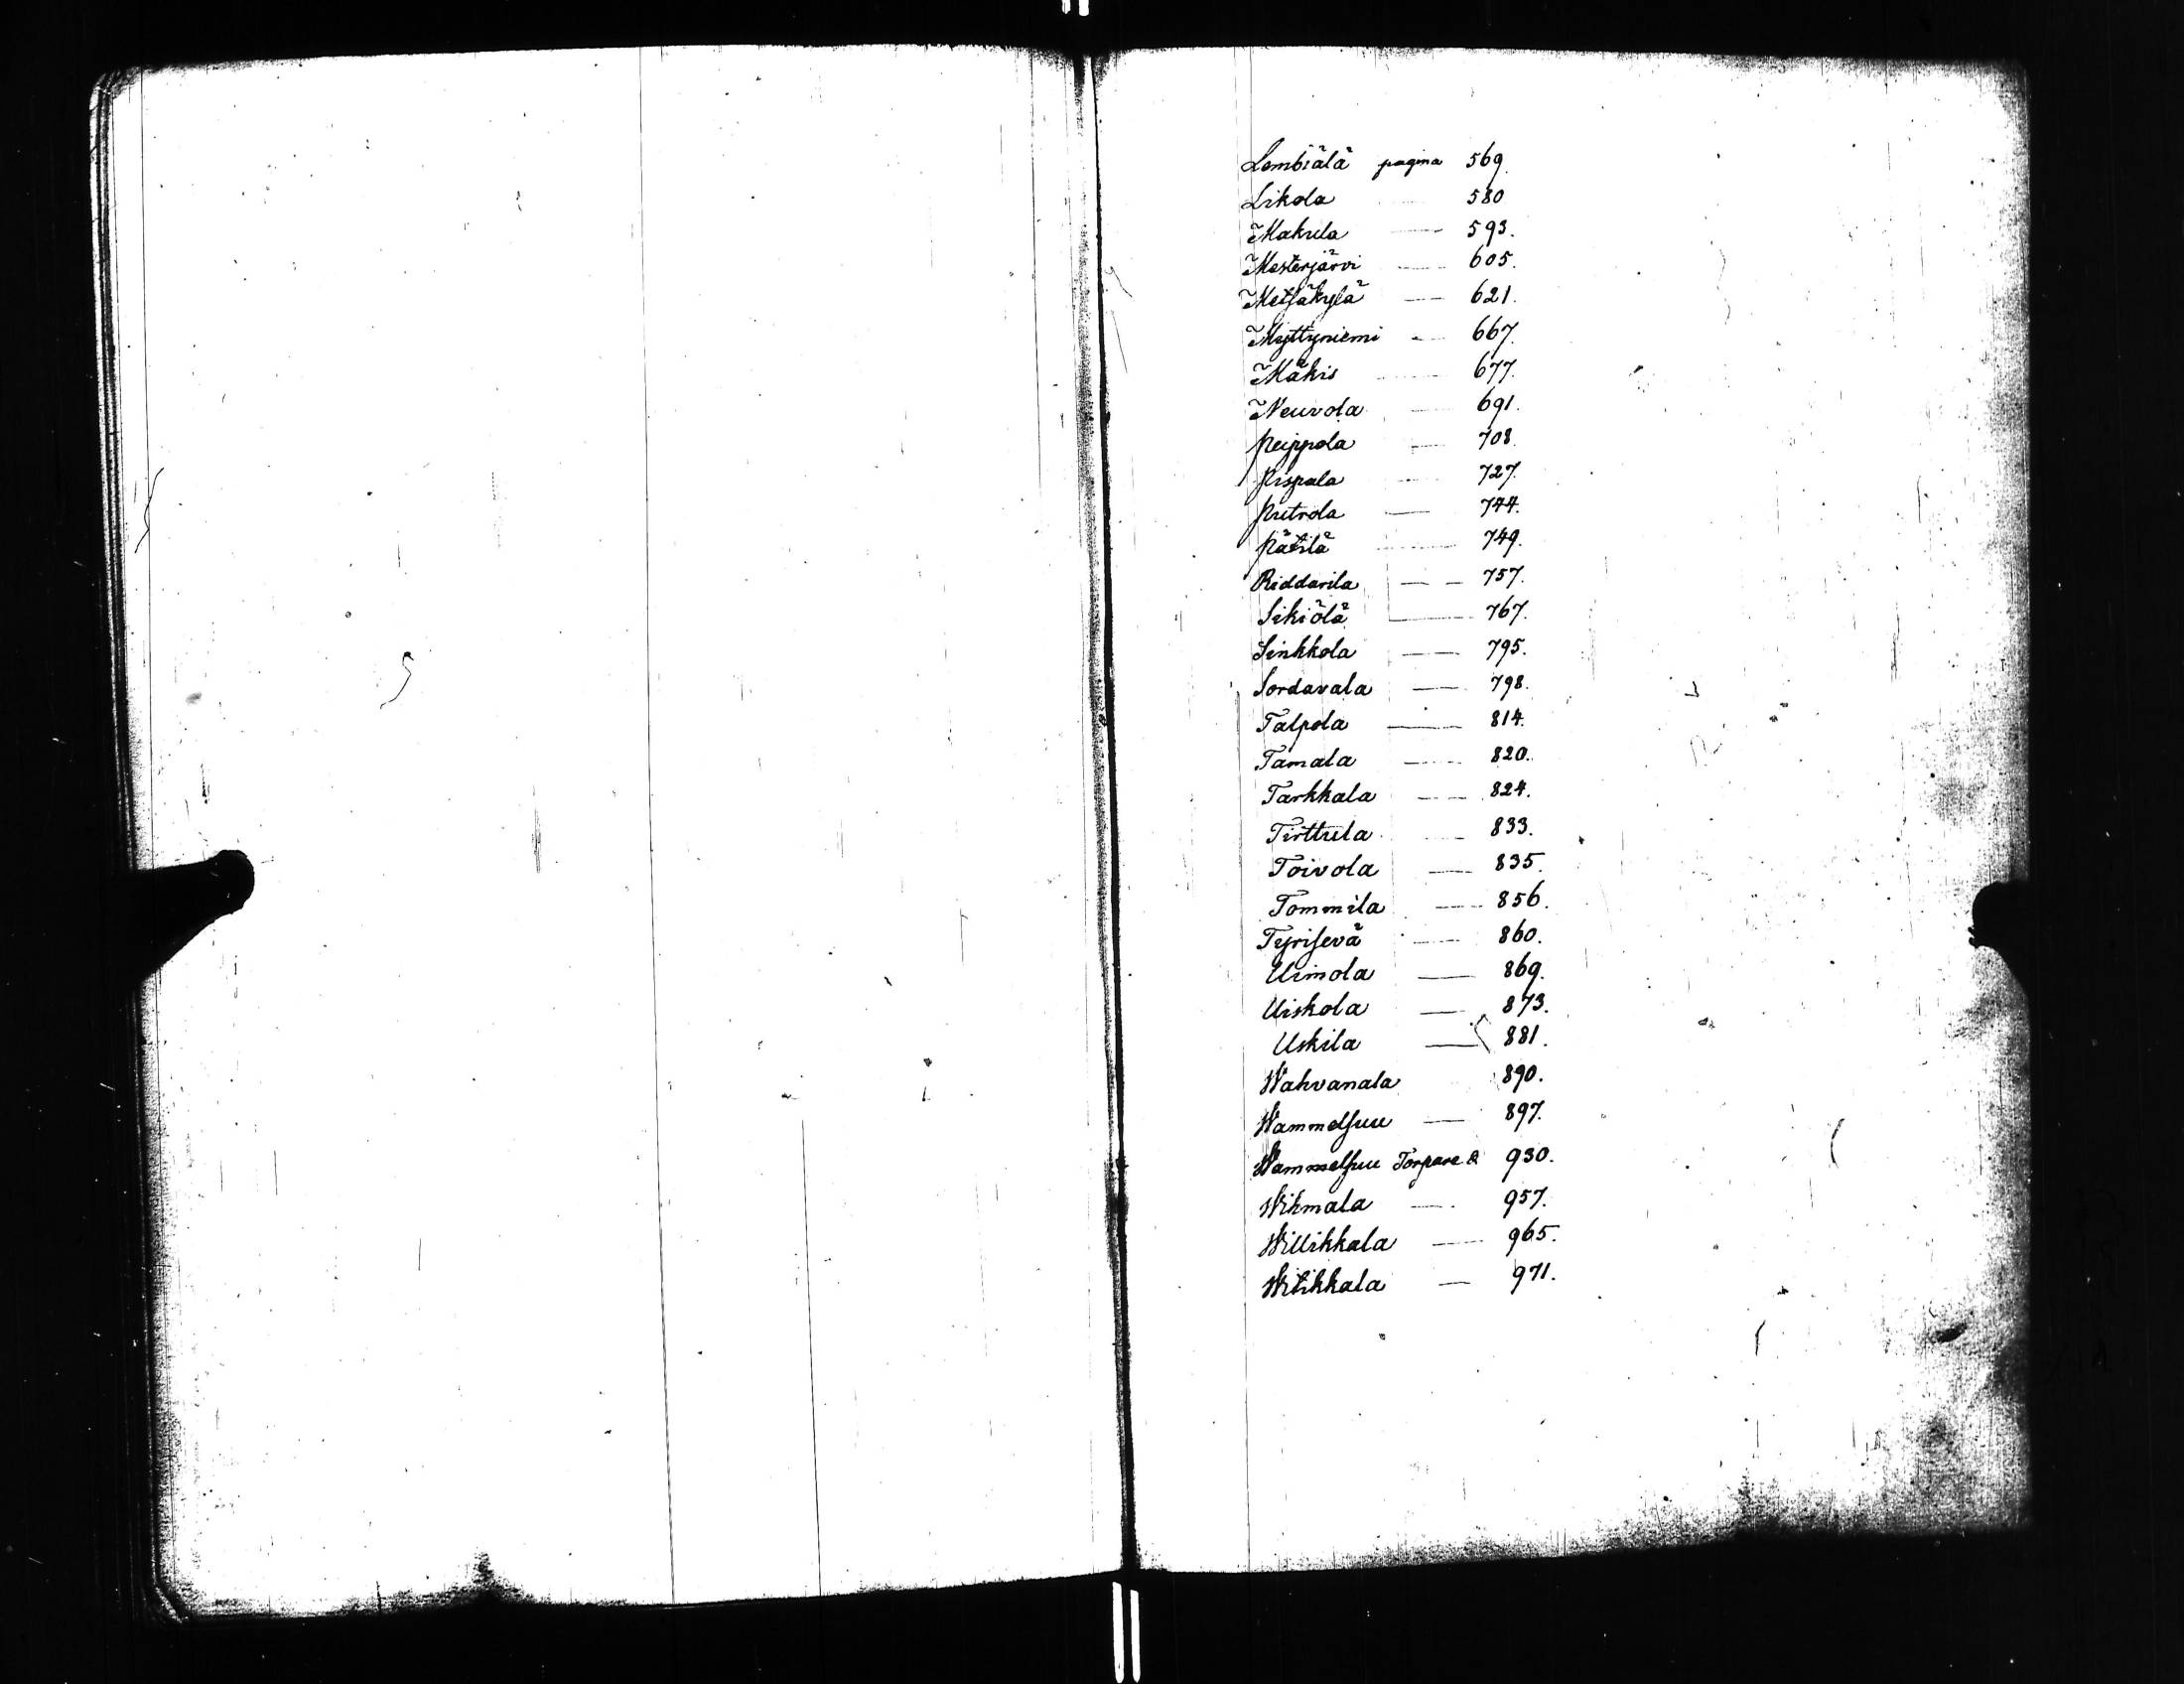 Lembiälä pagina 569.
Likola 580
Makula — 593.
Mesterjärvi — 605.
Metsäkylä — 621.
Myttyniemi — 667.
Mäkis — 677.
Neuvola — 691.
Peippola — 708.
Pispala — 727.
Putrola — 744.
Pätilä — 749.
Riddarila — — 757.
Sikiölä — 767.
Sinkkola — 795.
Sordavala — 798.
Talpola — 814.
Tamala — 820.
Tarkkala — 824.
Tirttula — 833.
Toivola — 835.
Tommila — 856.
Tyrisevä — 860.
Uimola — 869.
Uiskola — 873.
Uskila — 881.
Wahvanala 890.
Wammelsuu — 897.
Wammelsuu Torpare 930.
Wikmala — 957.
Willikkala — 965.
Witikkala — 971.